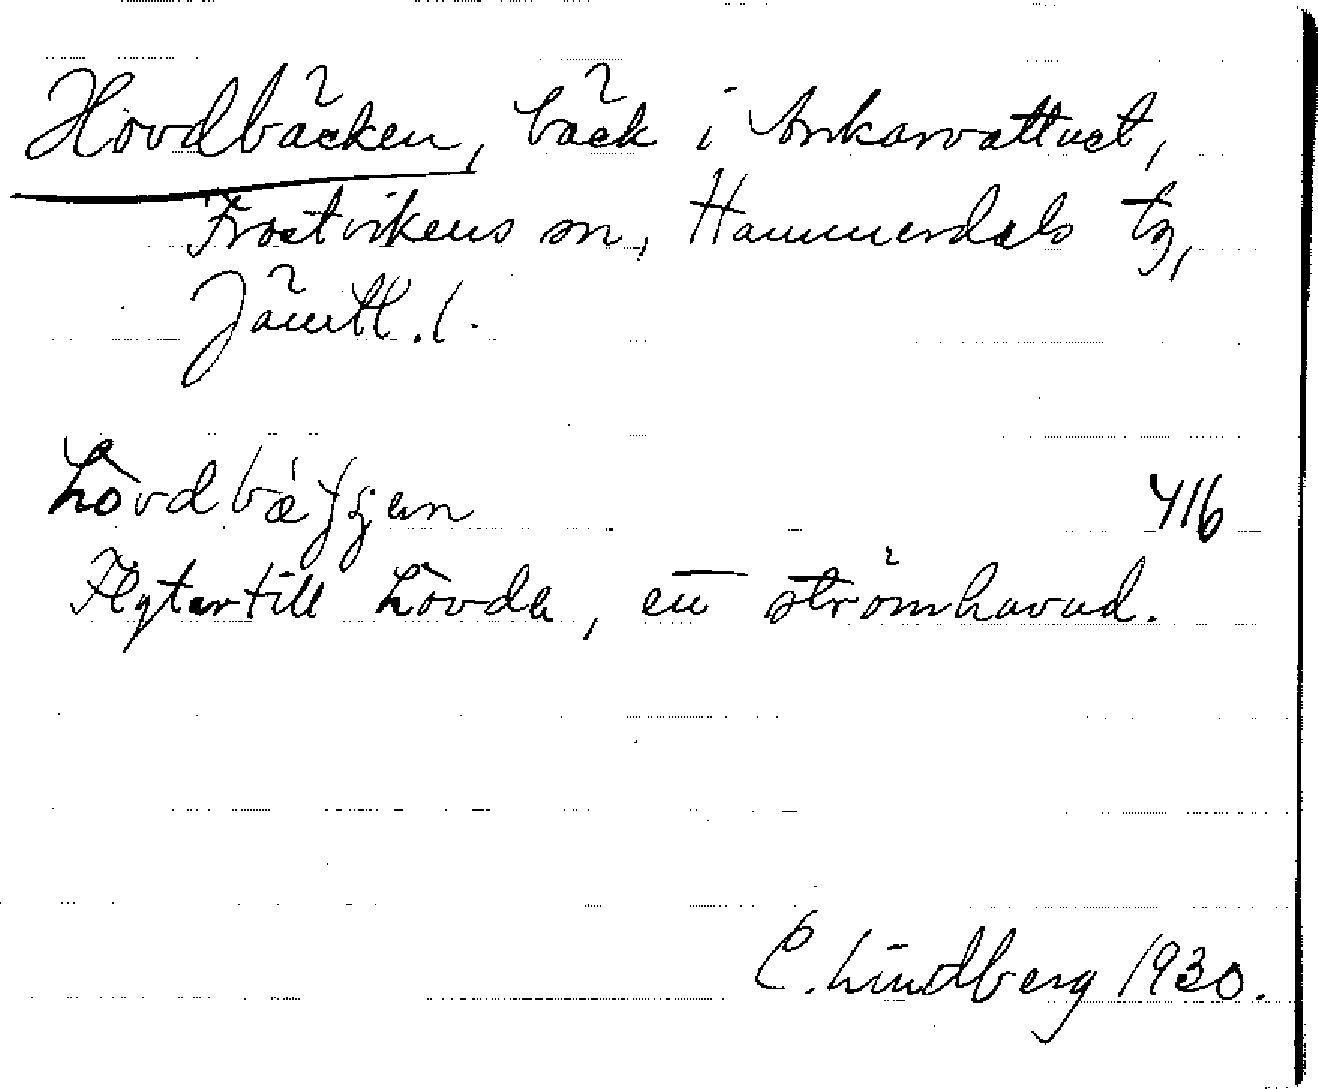 Hovdbäcken, bäck i Ankarvattnet,
Frostvikens sn, Hammerdals tg,
Jämtl. l.
416
Flyter till hovda, en strömhuvud.
C. Lindberg 1930.